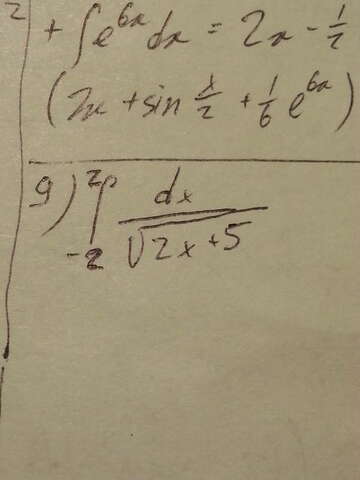 2
+ ∫e^{6x}dx = 2x - 1/2
(2x + sin x/2 + 1/6 e^{6x})
9) ∫_{-2}^{2} dx/√(2x+5)